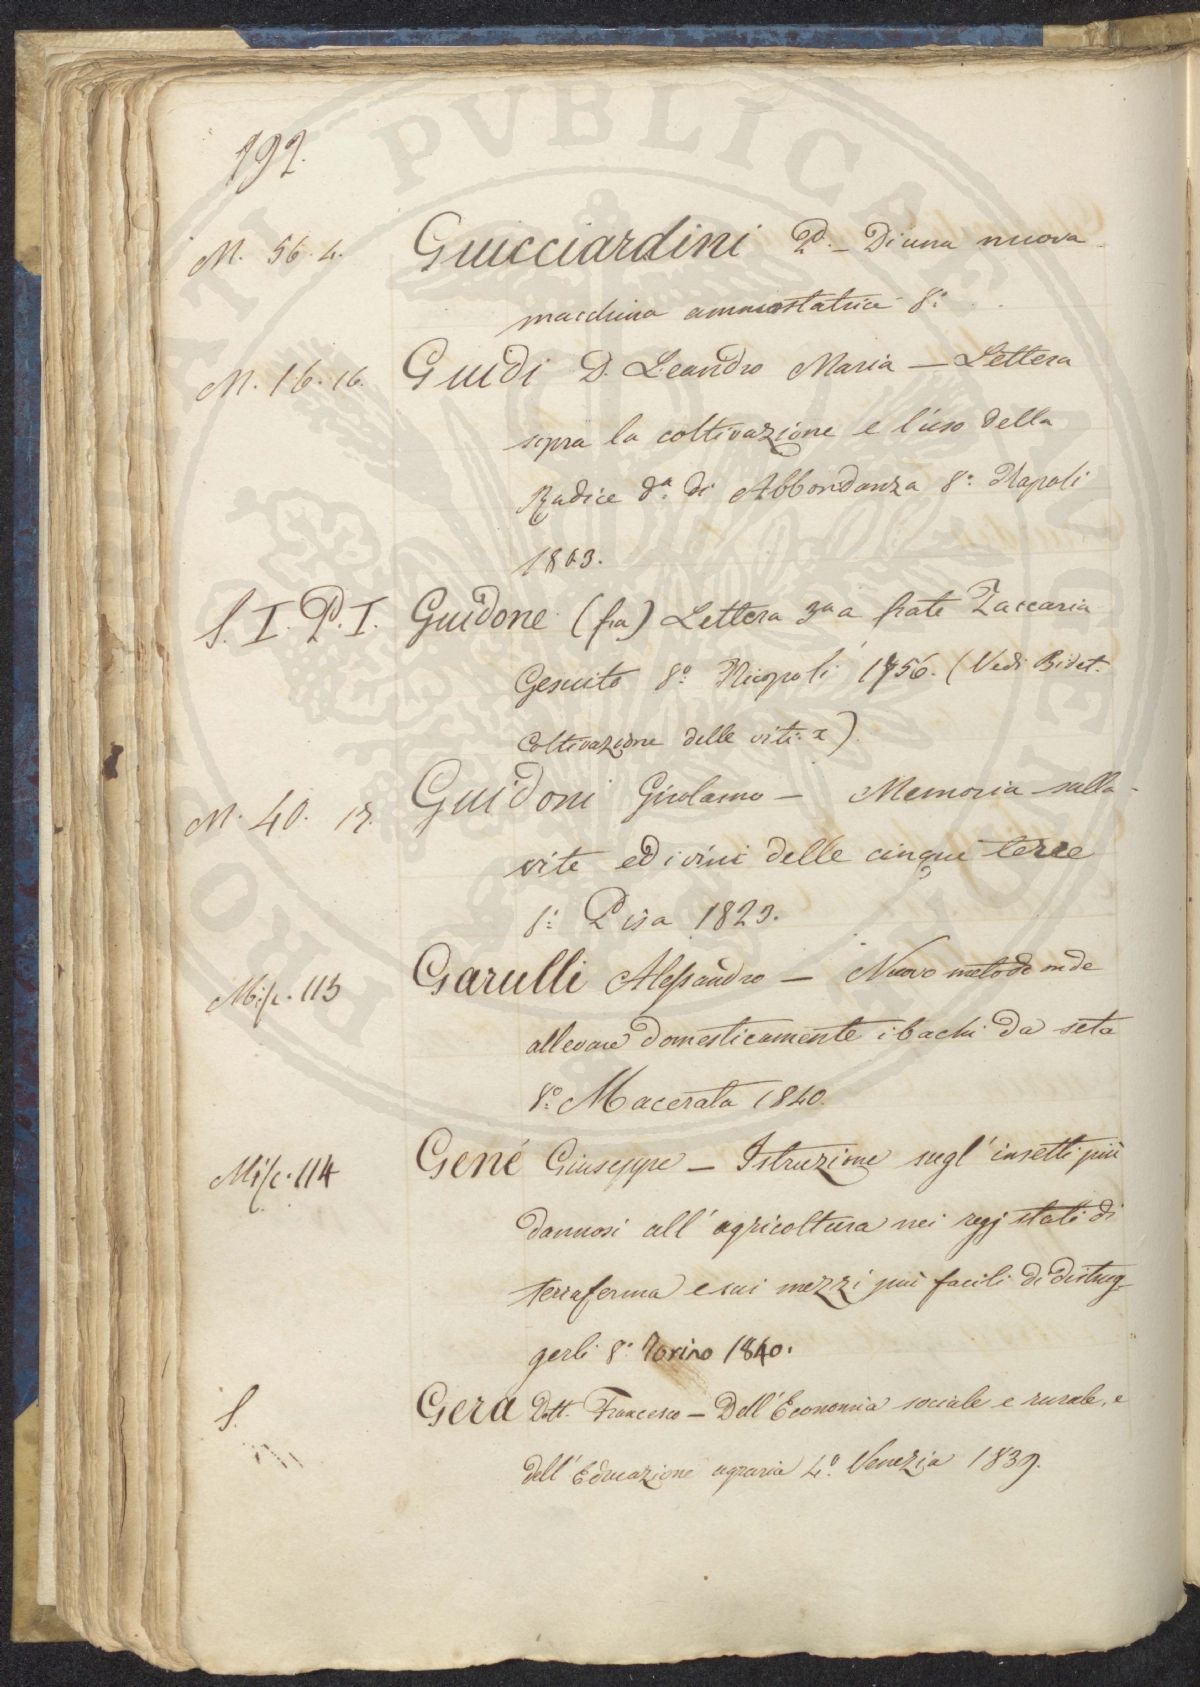 192.
M. 56. 4. Guicciardini Pd. – Di una nuova
macchina ammostatrice 8.°
M. 16. 16. Guidi D. Leandro Maria – Lettera
sopra la coltivazione e l'uso della
Radice d.a di Abbondanza 8.° Napoli
1803.
S. I. P. I. Guidone (fra) Lettera 3.a a frate Zaccaria
Gesuito 8.° Nicopoli 1756. (Vedi Bidet.
Coltivazione delle viti. x)
M. 40. 17. Guidoni Girolamo – Memoria sulla
vite ed i vini delle cinque terre
8.° Pisa 1823.
Misc. 113 Garulli Alessandro – Nuovo metodo onde
allevare domesticamente i bachi da seta
8.° Macerata 1840.
Misc. 114 Gené Giuseppe – Istruzione sugl' insetti più
dannosi all' agricoltura nei regj stati di
terraferma e sui mezzi più facili di distrug-
gerli 8.° Torino 1840.
S. Gera Dott. Francesco – Dell' Economia sociale e rurale, e
dell' Educazione agraria 4.° Venezia 1839.